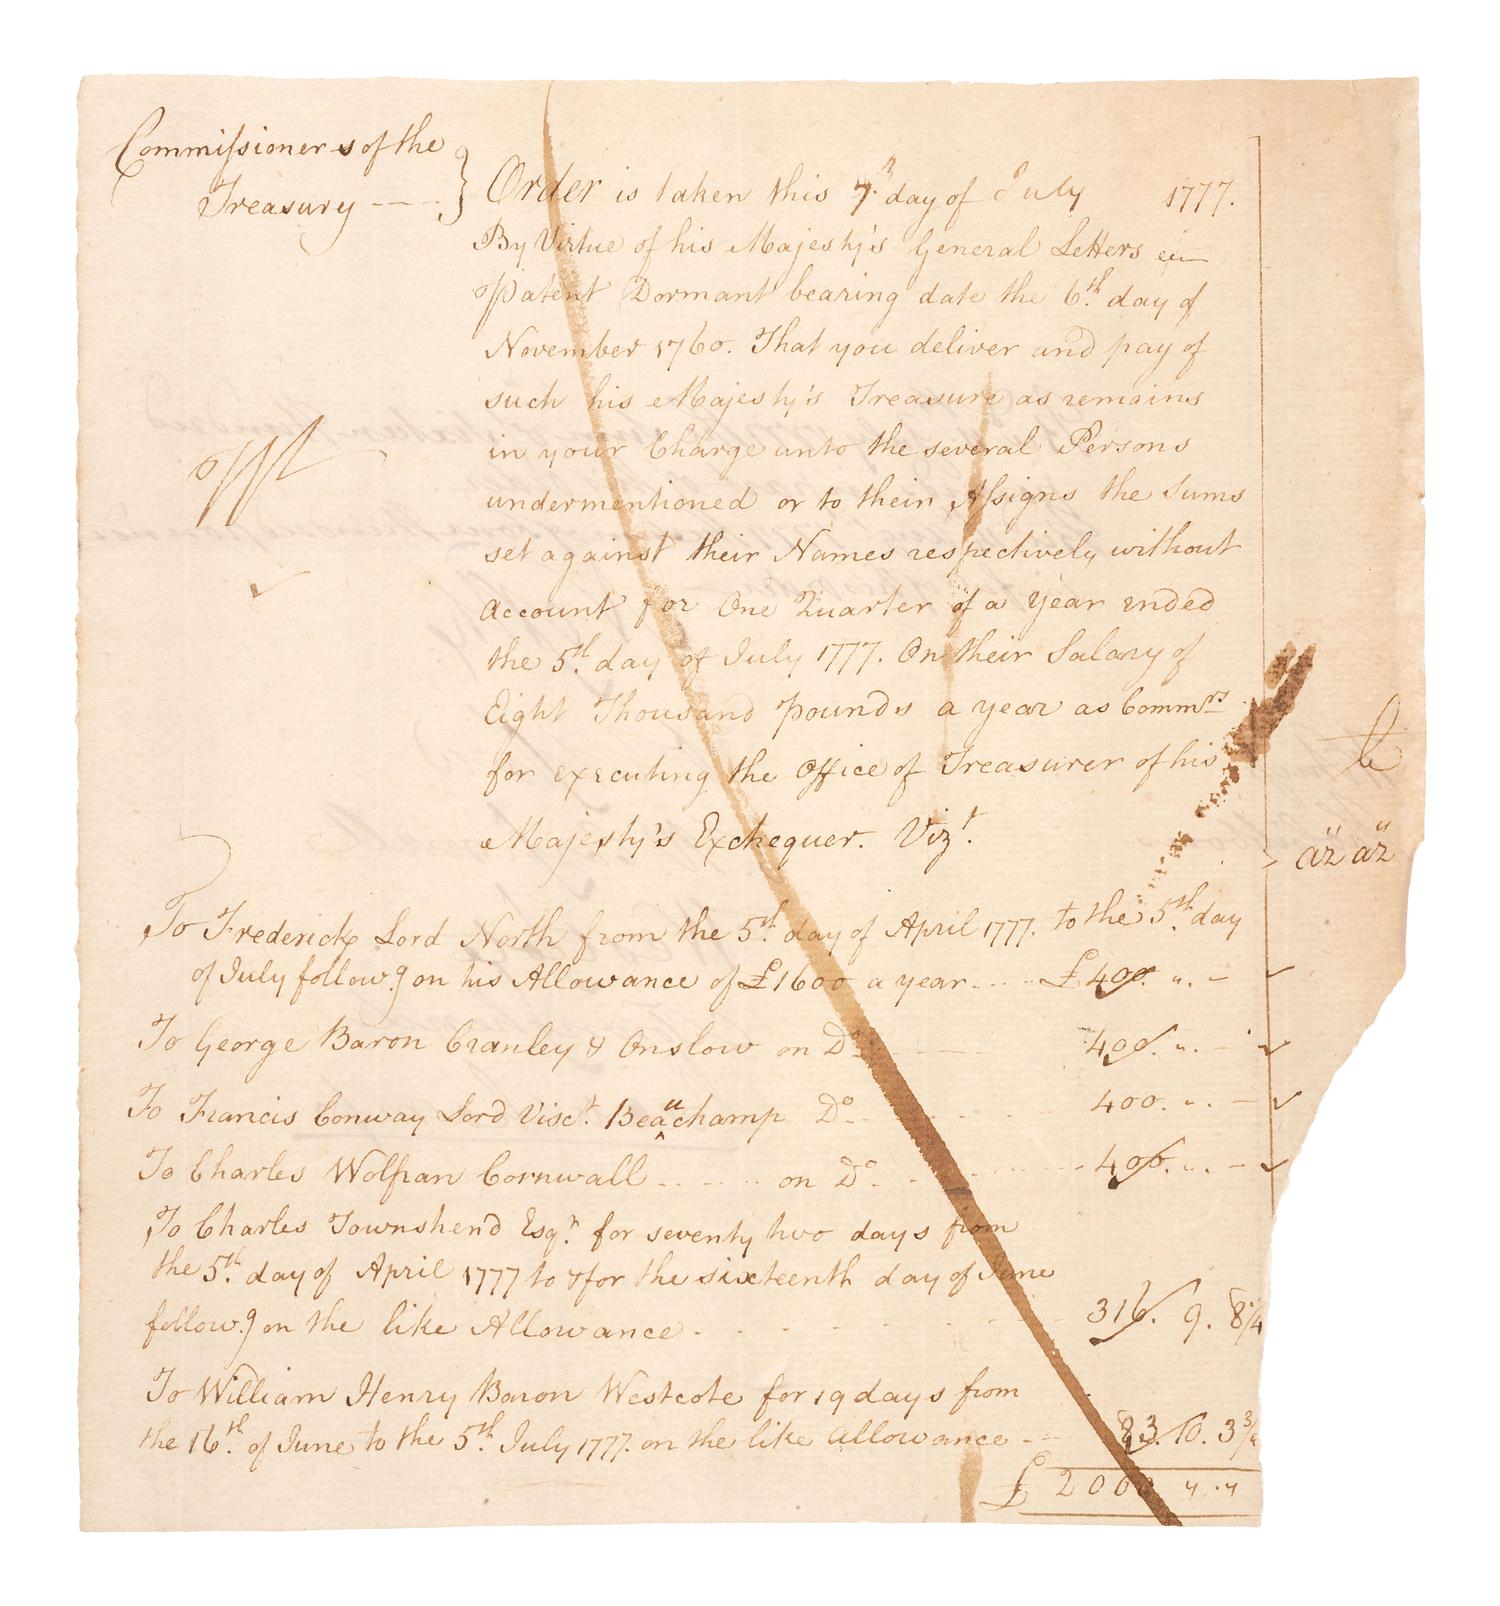 Commissioners of the
Treasury ----
Order is taken this 7.th day of July 1777.
By Virtue of his Majesty's General Letters
Patent Dormant bearing date the 6.th day of
November 1760. That you deliver and pay of
such his Majesty's Treasure as remains
in your Charge unto the several Persons
undermentioned or to their Assigns the Sums
set against their Names respectively without
Account for One Quarter of a Year ended
the 5.th day of July 1777. On their Salary of
Eight Thousand Pounds a year as Commrs
for executing the Office of Treasurer of his
Majesty's Exchequer. Vizt.
To Frederick Lord North from the 5.th day of April 1777. to the 5.th day
of July follow.g on his Allowance of £1600 a year.... £400. „. -
To George Baron Cranley & Onslow on Do 400. „. -
To Francis Conway Lord Visct. Beauchamp Do. 400. „. -
To Charles Wolfran Cornwall ..... on Do. 400. „. -
To Charles Townshend Esqr. for seventy two days from
the 5.th day of April 1777 to & for the sixteenth day of June
follow.g on the like Allowance. 316. 9. 8 1/4
To William Henry Baron Westcote for 19 days from
the 16.th of June to the 5.th July 1777. on the like allowance -- 83. 10. 3 3/4
£ 2000 „. „